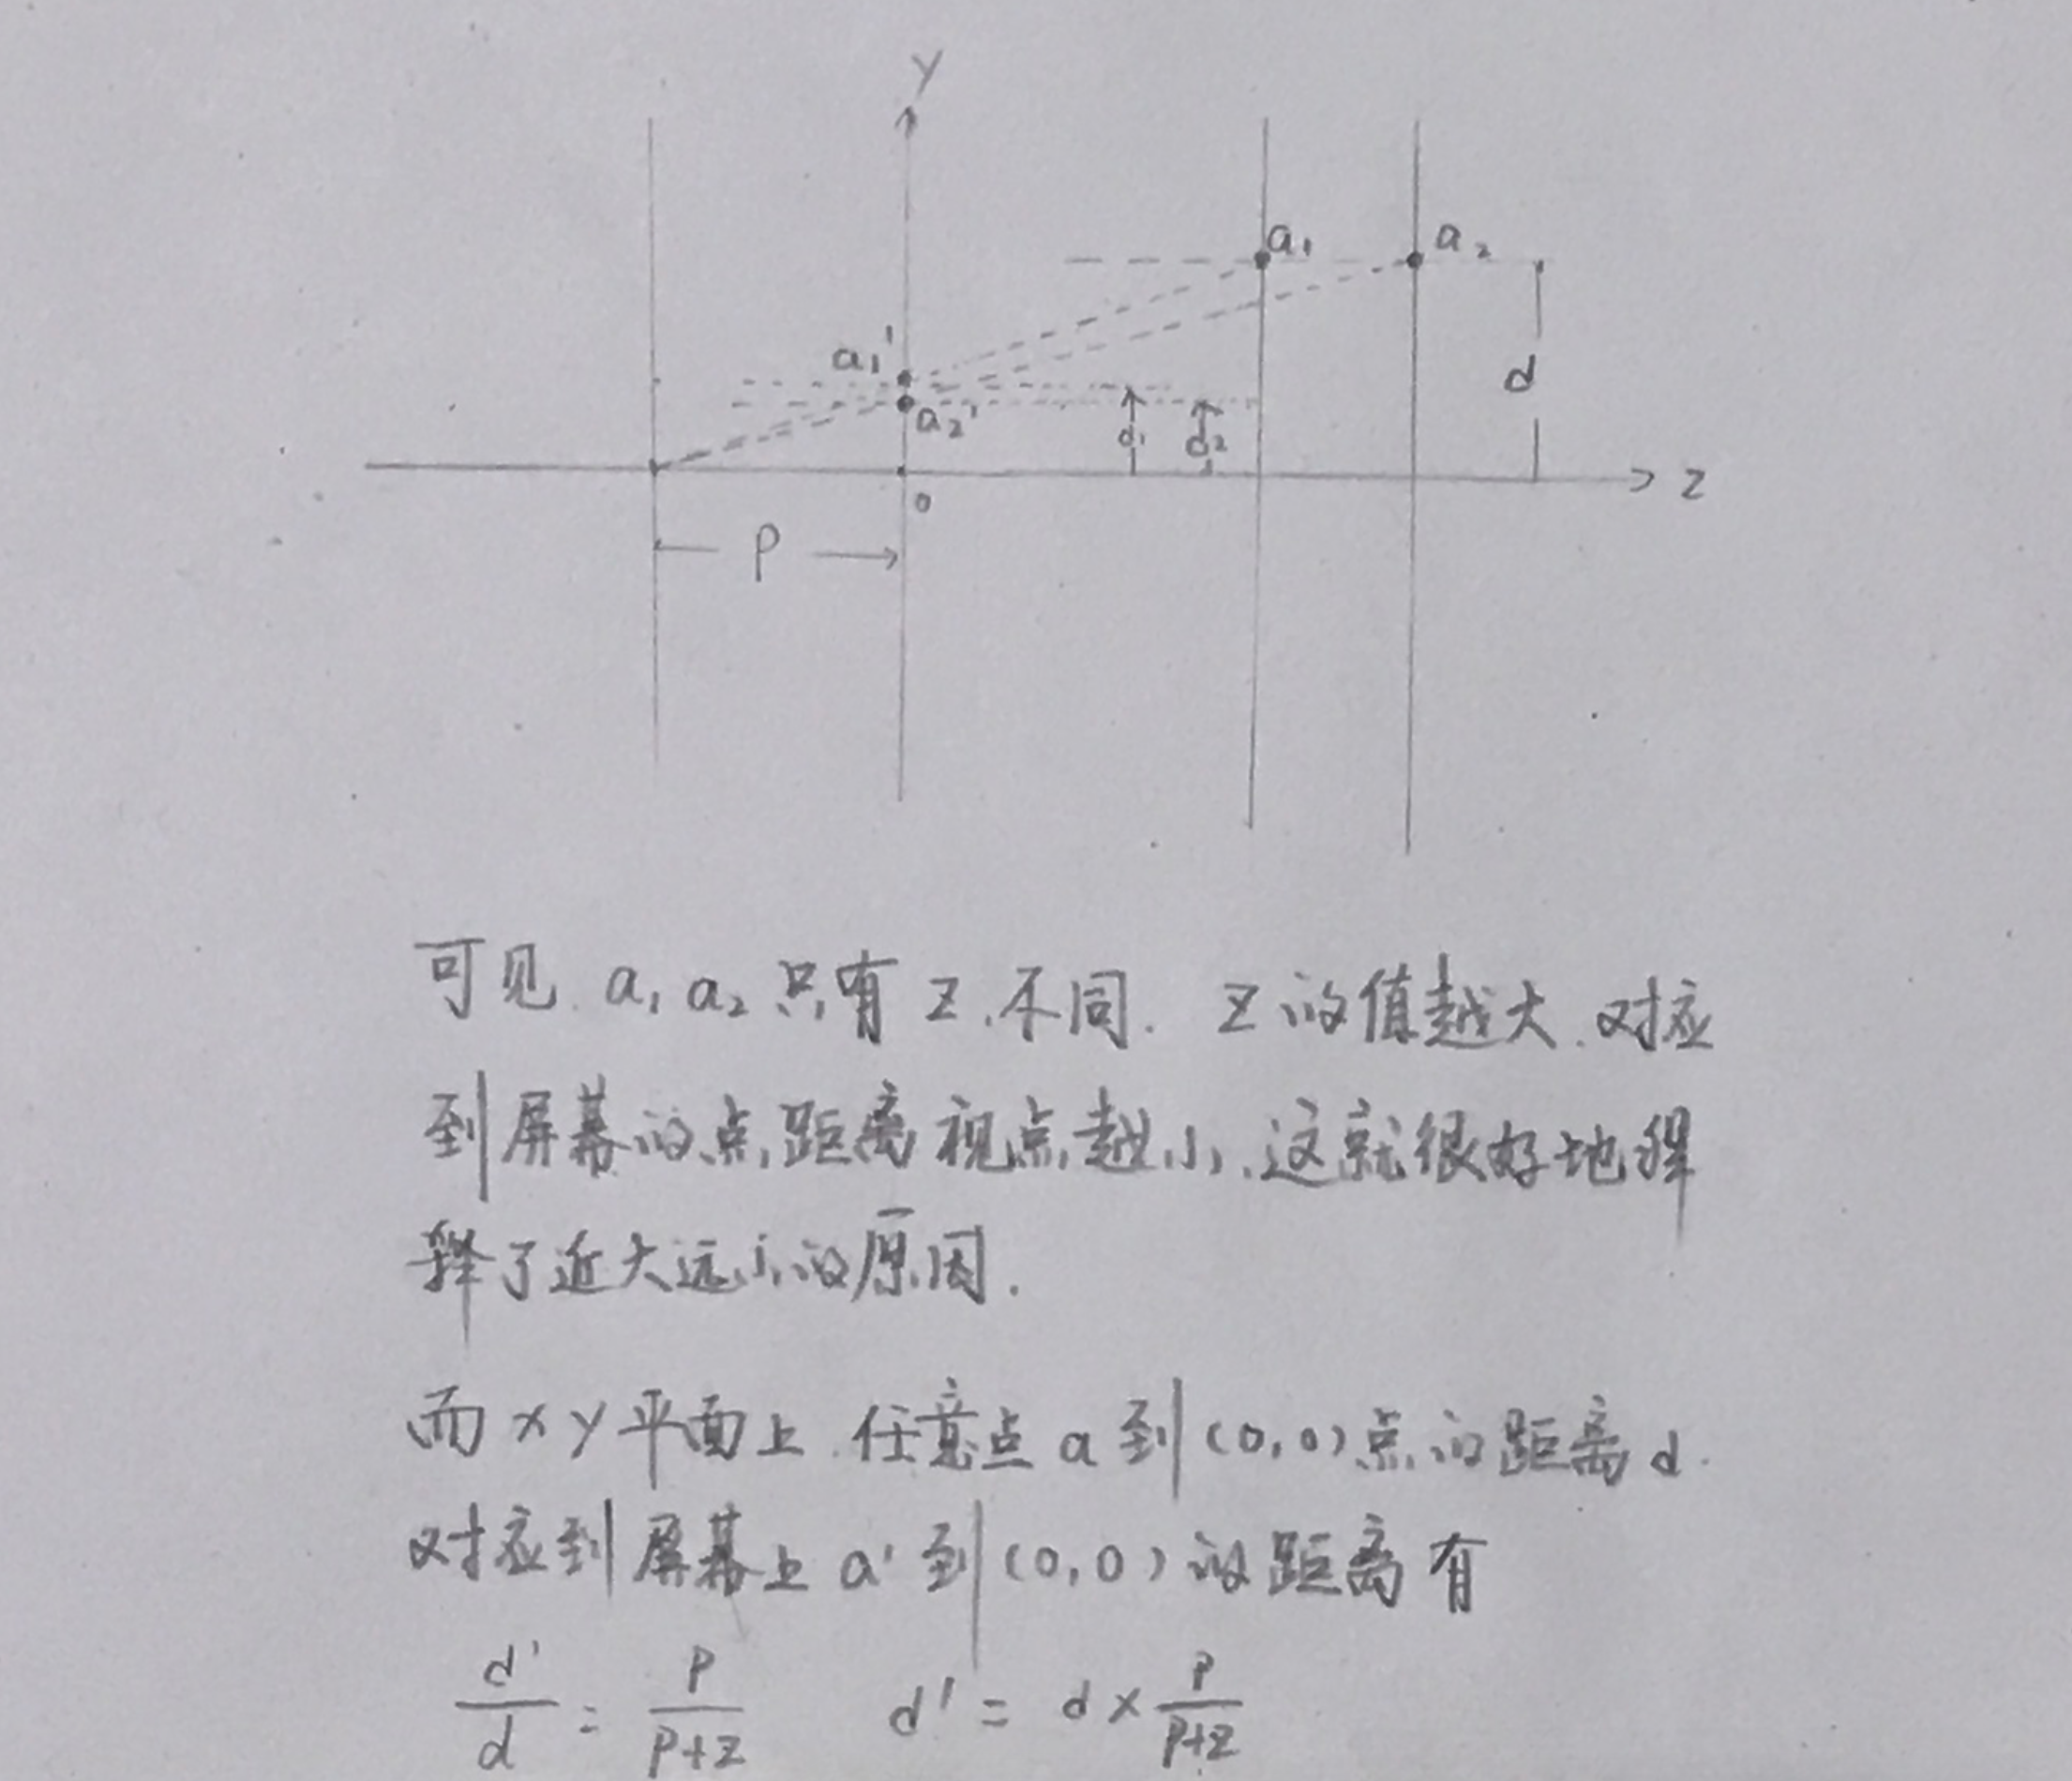 y
a₁ a₂
a₁'
d
a₂' d₁ d₂
z
o
P
可见.a₁ a₂只有z.不同. z的值越大.对应
到屏幕的点,距离视点越小.这就很好地释
释了近大远小的原因.
而xy平面上.任意点a到(0,0)点的距离d.
对应到屏幕上a'到(0,0)的距离有
d'/d = P/P+z d' = d × P/P+z